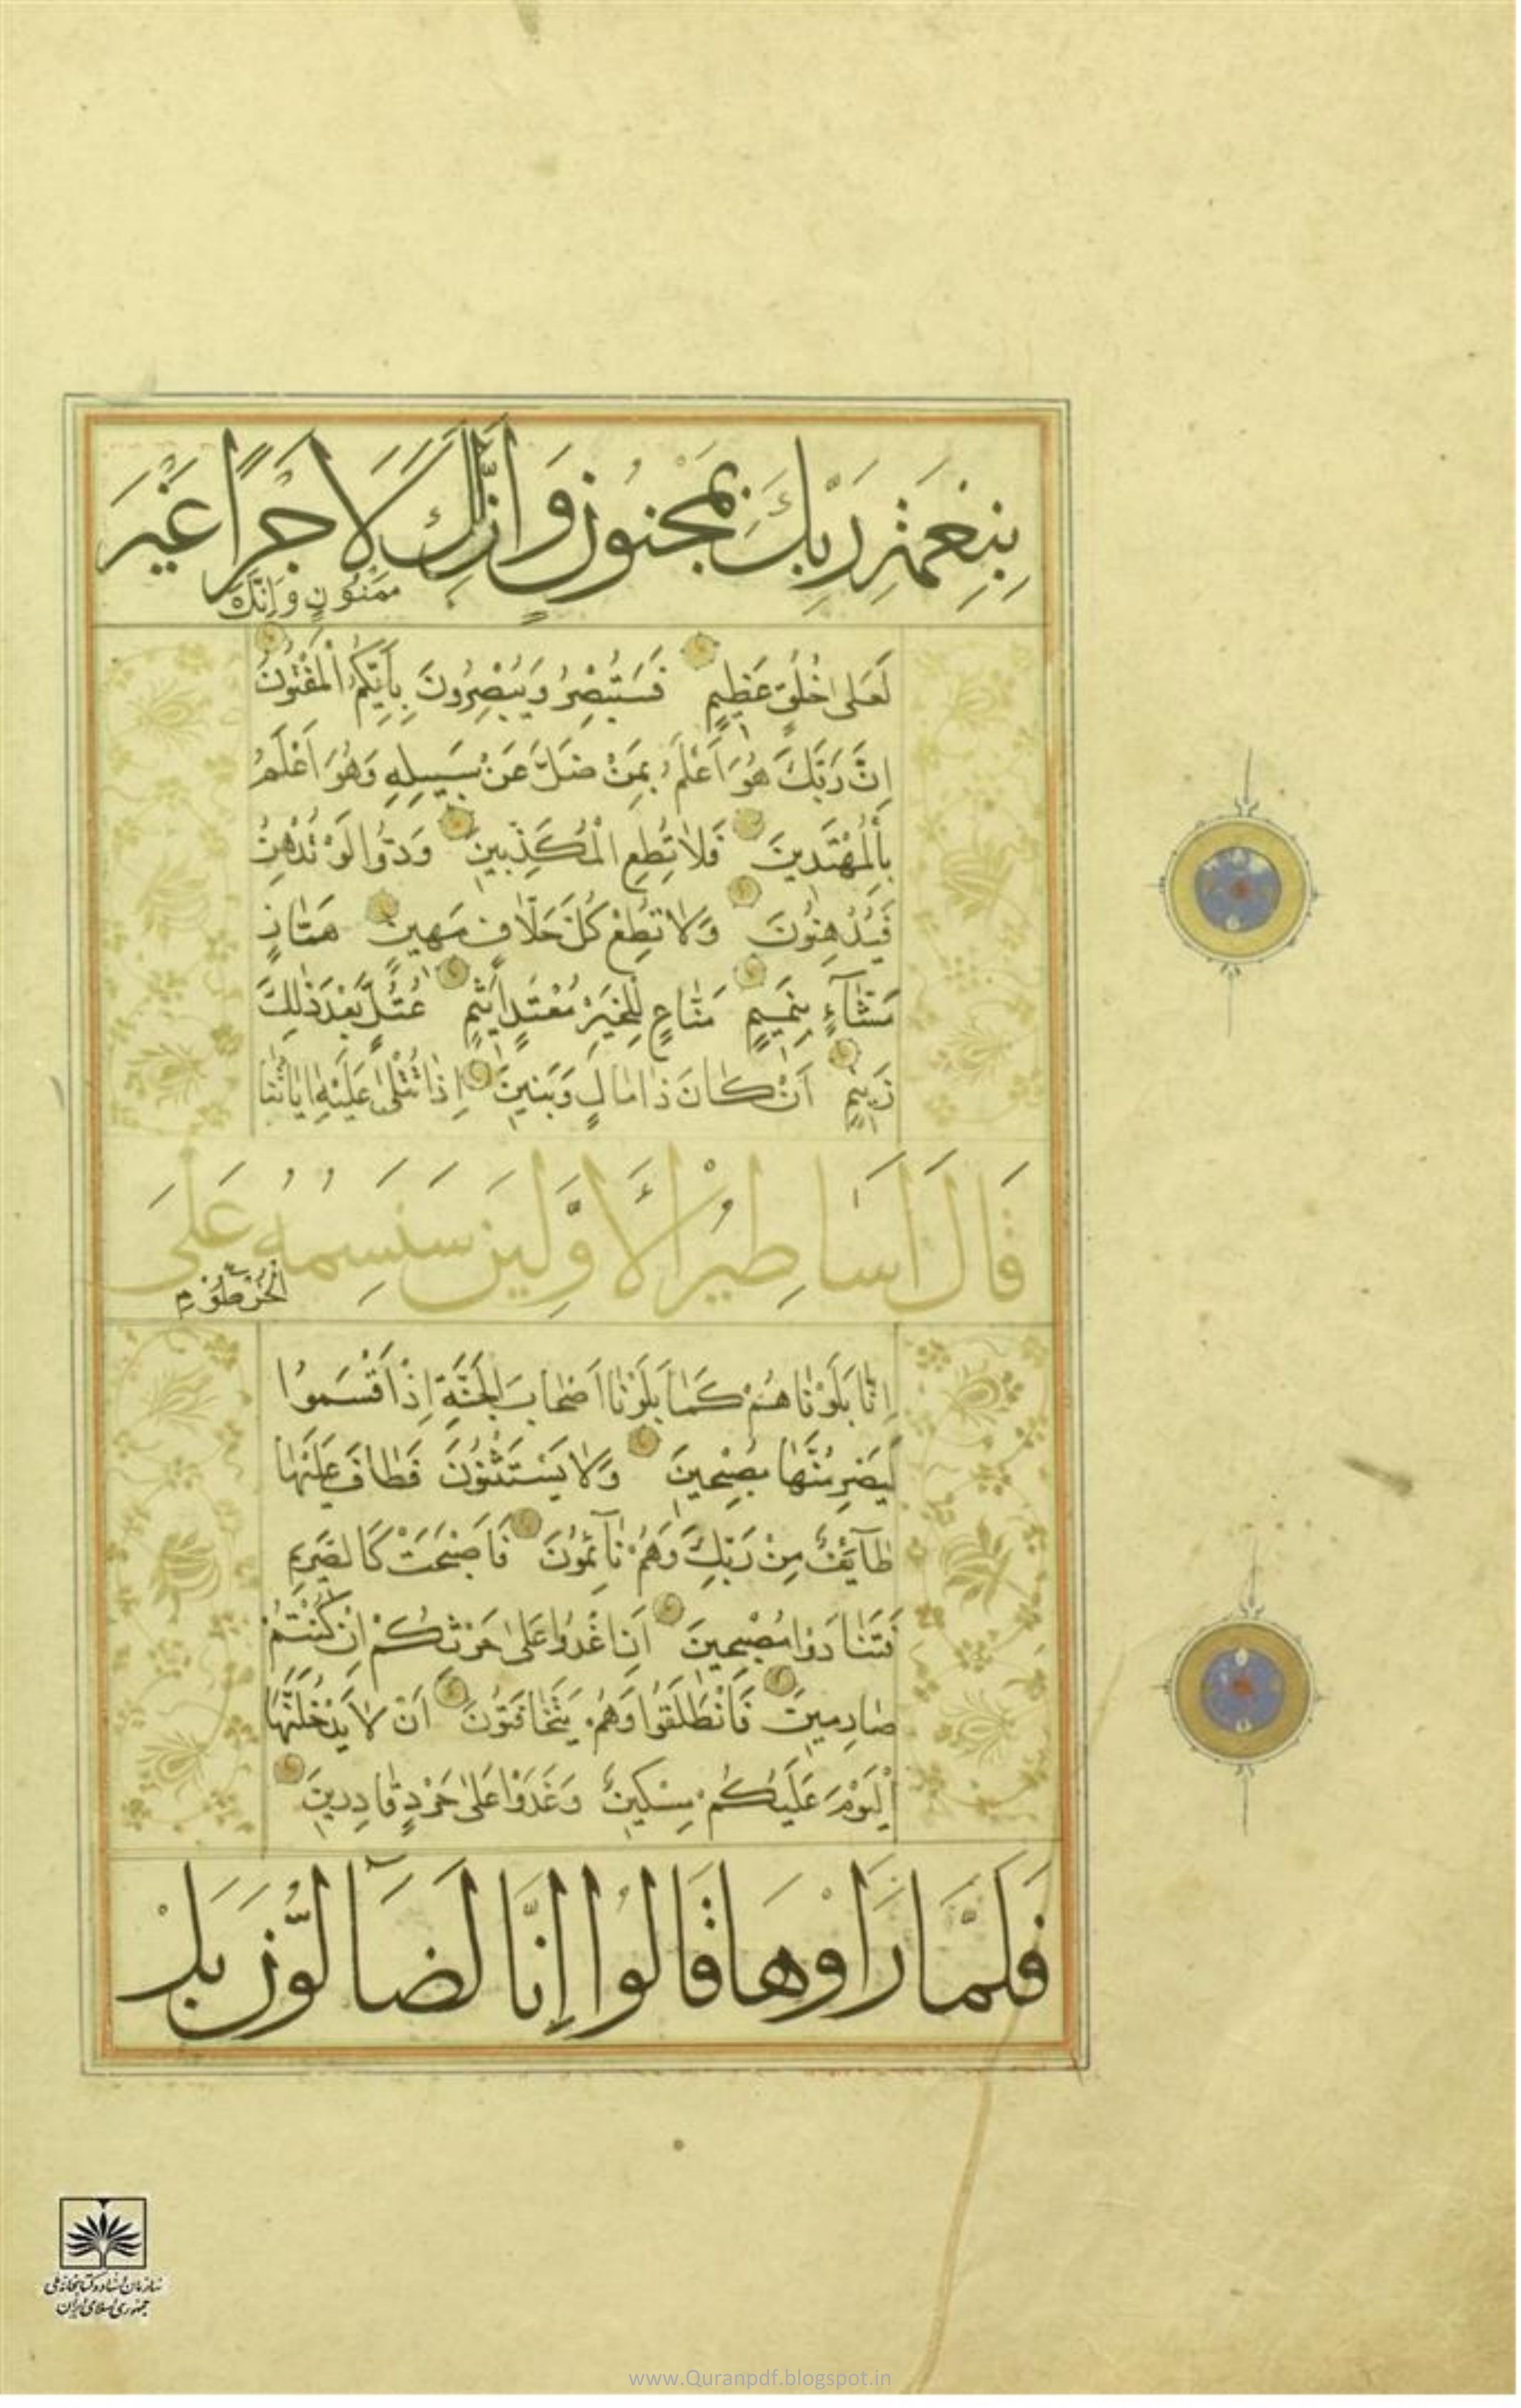 بِنِعْمَةِ رَبِّكَ بِمَجْنُونٍ وَاِنَّ لَكَ لَاَجْرًا غَيْرَ
مَمْنُونٍ وَاِنَّكَ
لَعَلٰى خُلُقٍ عَظِيمٍ فَسَتُبْصِرُ وَيُبْصِرُونَ بِاَيِّكُمُ الْمَفْتُونُ
اِنَّ رَبَّكَ هُوَ اَعْلَمُ بِمَنْ ضَلَّ عَنْ سَبِيلِهِ وَهُوَ اَعْلَمُ
بِالْمُهْتَدِينَ فَلَا تُطِعِ الْمُكَذِّبِينَ وَدُّوا لَوْ تُدْهِنُ
فَيُدْهِنُونَ وَلَا تُطِعْ كُلَّ حَلَّافٍ مَهِينٍ هَمَّازٍ
مَشَّآءٍ بِنَمِيمٍ مَنَّاعٍ لِلْخَيْرِ مُعْتَدٍ اَثِيمٍ عُتُلٍّ بَعْدَ ذٰلِكَ
زَنِيمٍ اَنْ كَانَ ذَا مَالٍ وَبَنِينَ اِذَا تُتْلٰى عَلَيْهِ اٰيَاتُنَا
قَالَ اَسَاطِيرُ الْاَوَّلِينَ سَنَسِمُهُ عَلَى
الْخُرْطُومِ
اِنَّا بَلَوْنَاهُمْ كَمَا بَلَوْنَا اَصْحَابَ الْجَنَّةِ اِذْ اَقْسَمُوا
لَيَصْرِمُنَّهَا مُصْبِحِينَ وَلَا يَسْتَثْنُونَ فَطَافَ عَلَيْهَا
طَآئِفٌ مِنْ رَبِّكَ وَهُمْ نَآئِمُونَ فَاَصْبَحَتْ كَالصَّرِيمِ
فَتَنَادَوْا مُصْبِحِينَ اَنِ اغْدُوا عَلٰى حَرْثِكُمْ اِنْ كُنْتُمْ
صَارِمِينَ فَانْطَلَقُوا وَهُمْ يَتَخَافَتُونَ اَنْ لَا يَدْخُلَنَّهَا
الْيَوْمَ عَلَيْكُمْ مِسْكِينٌ وَغَدَوْا عَلٰى حَرْدٍ قَادِرِينَ
فَلَمَّا رَاَوْهَا قَالُوا اِنَّا لَضَآلُّونَ بَلْ
سازمان اسناد و کتابخانه ملی
جمهوری اسلامی ایران
www.Quranpdf.blogspot.in